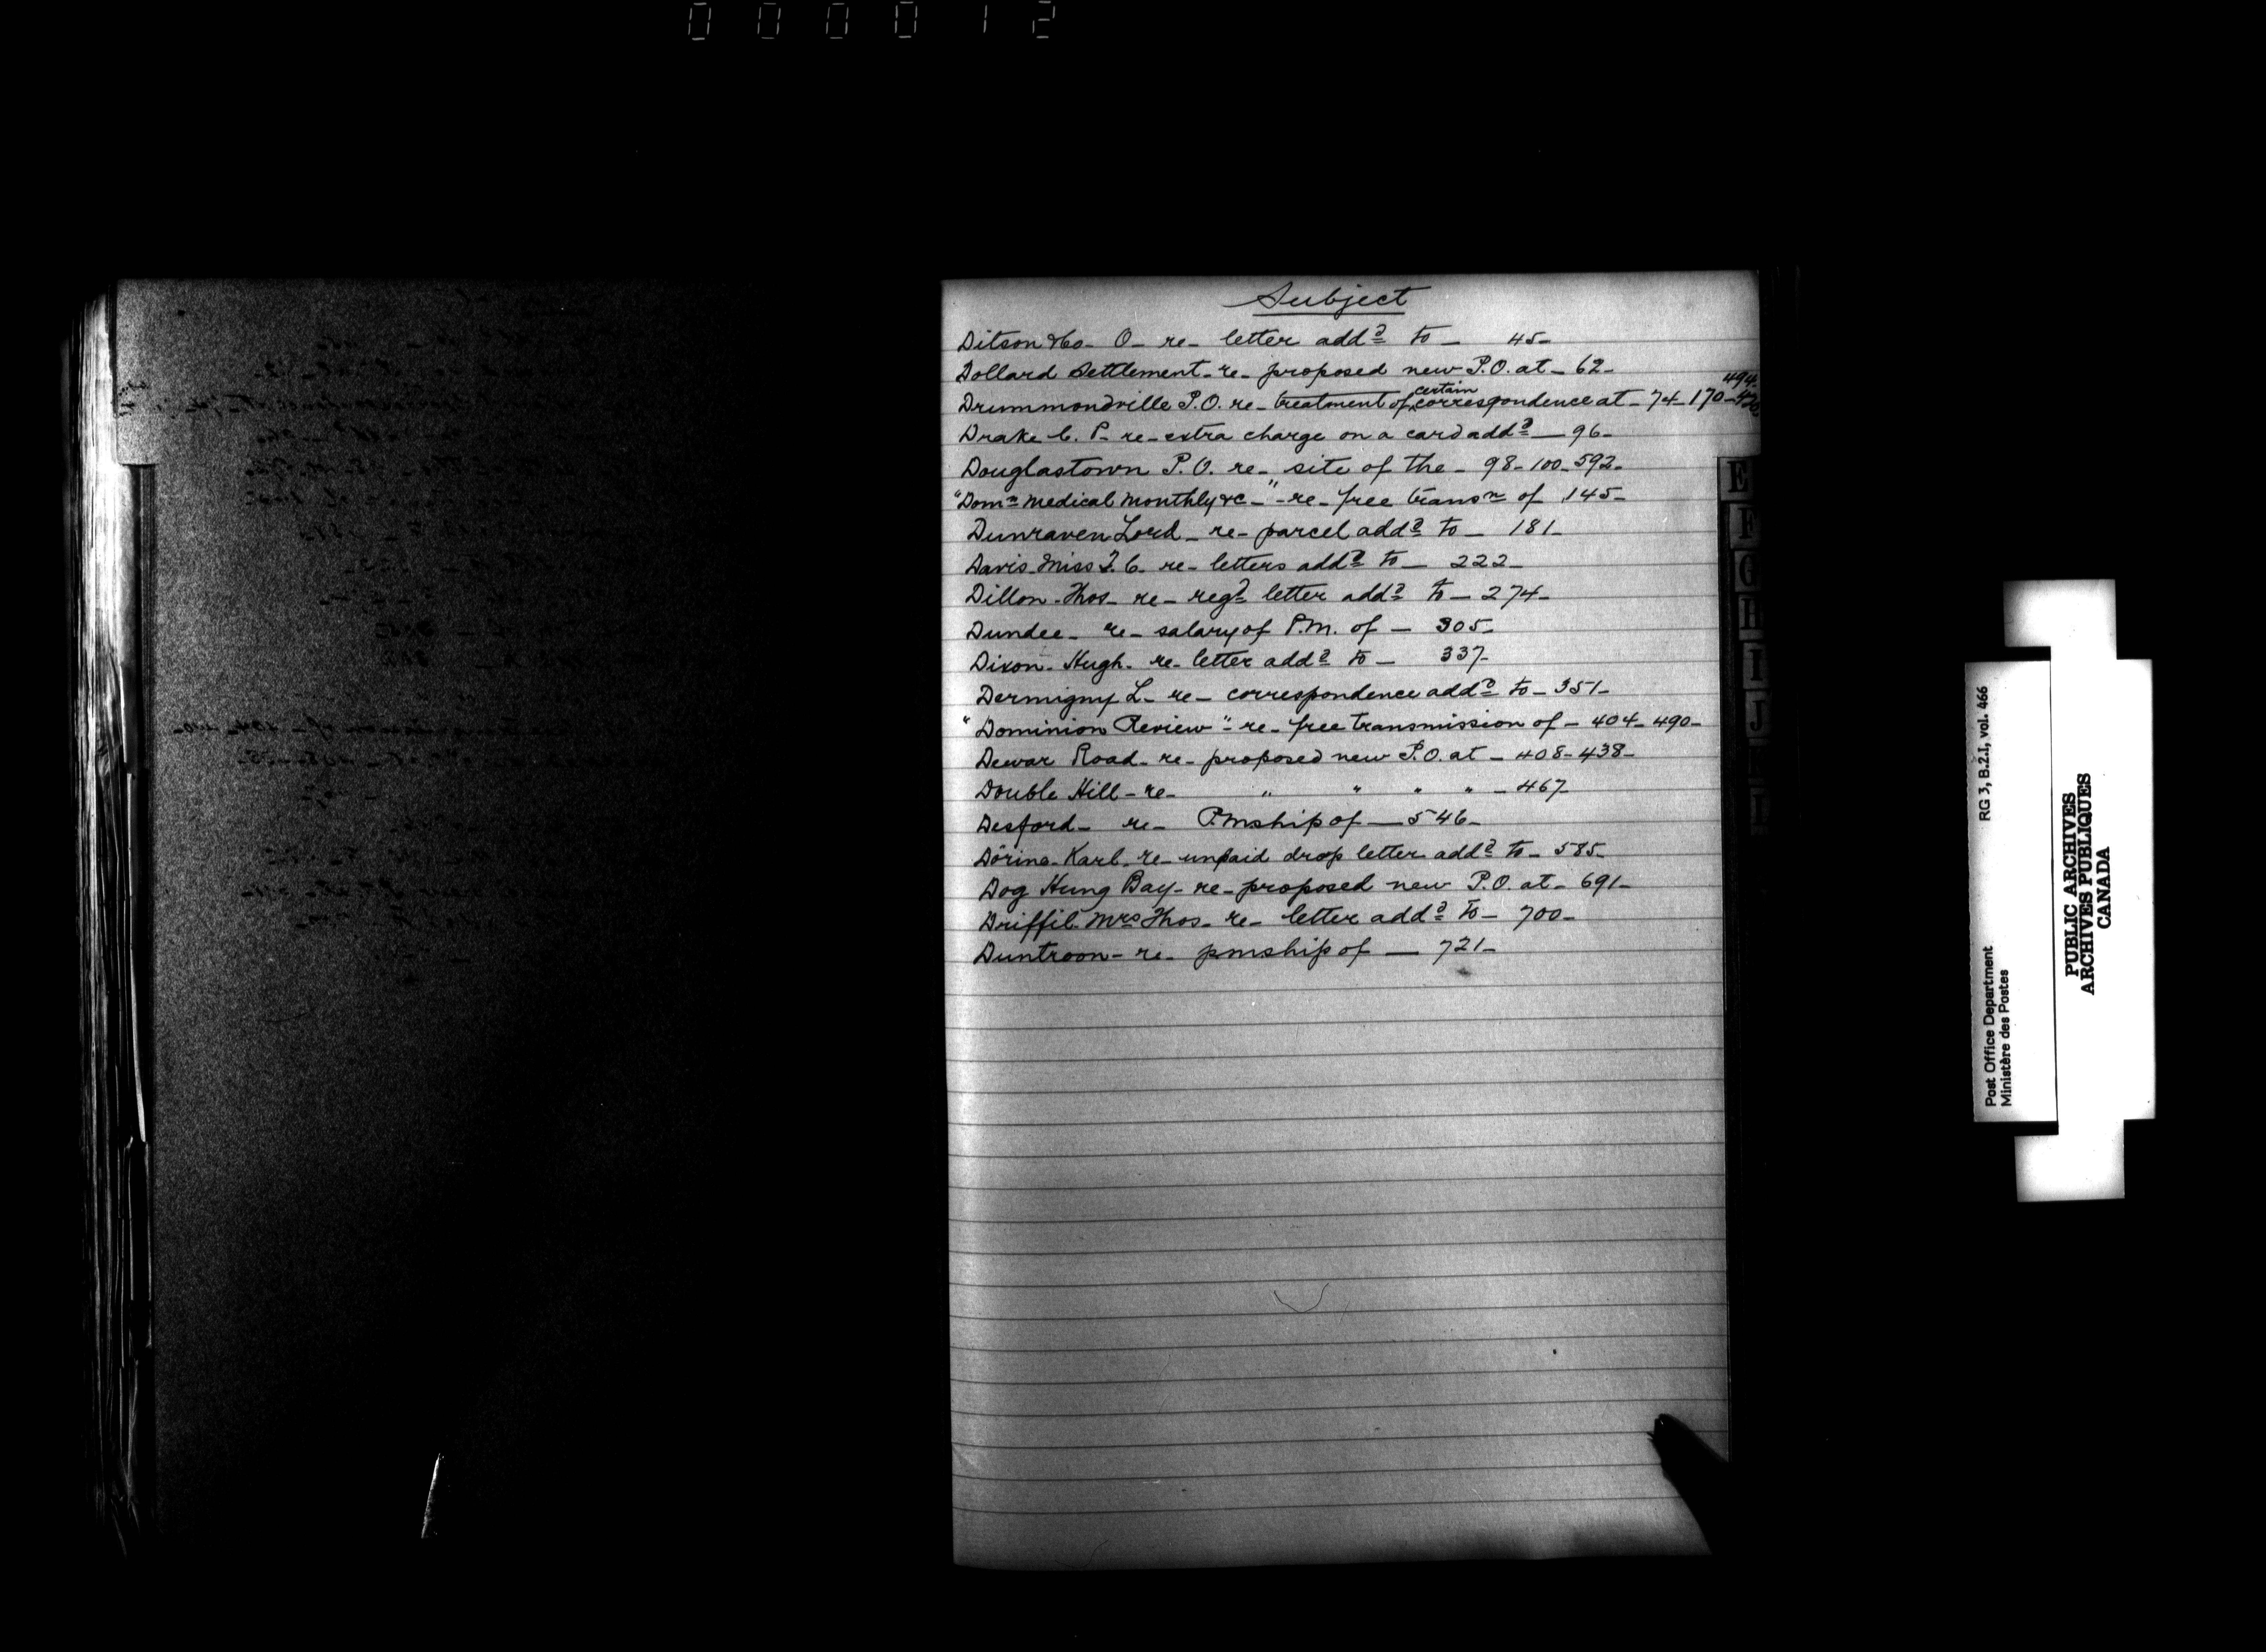 000012
Subject
Ditson &Co- O- re- letter addd to - 45-
Dollard Settlement- re- proposed new P.O. at - 62-
494-
certain
Drummondville P.O. re- treatment of correspondence at - 74- 170-
Drake C. P- re- extra charge on a card addd - 96-
Douglastown P.O. re- site of the - 98- 100- 592-
"Domn Medical Monthly &c-" - re- free transn of 145-
Dunraven Lord - re- parcel addd to - 181-
Davis- Miss J. C. re- letters addd to - 222-
Dillon- Thos- re- regd letter addd to - 274-
Dundee- re- salary of P.M. of - 305-
Dixon- Hugh- re- letter addd to - 337-
Dermigny L- re- correspondence addd to - 351-
"Dominion Review"- re- free transmission of - 404- 490-
Dewar Road- re- proposed new P.O. at - 408- 438-
Double Hill- re- " " " " - 467-
Desford- re- P.mship of - 546-
Döring- Karl- re- unpaid drop letter addd to - 585-
Dog Hung Bay- re- proposed new P.O. at - 691-
Driffil- Mrs Thos- re- letter addd to - 700-
Duntroon- re- pmship of - 721-
E
F
G
H
I
J
L
Post Office Department
Ministère des Postes
RG 3, B.2.I, vol. 466
PUBLIC ARCHIVES
ARCHIVES PUBLIQUES
CANADA